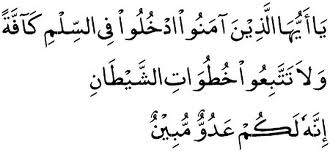 يَا أَيُّهَا الَّذِينَ آمَنُوا ادْخُلُوا فِى السِّلْمِ كَآفَّةً
وَلاَ تَتَّبِعُوا خُطُوَاتِ الشَّيْطَانِ
إِنَّهُ لَكُمْ عَدُوٌّ مُبِيْنٌ